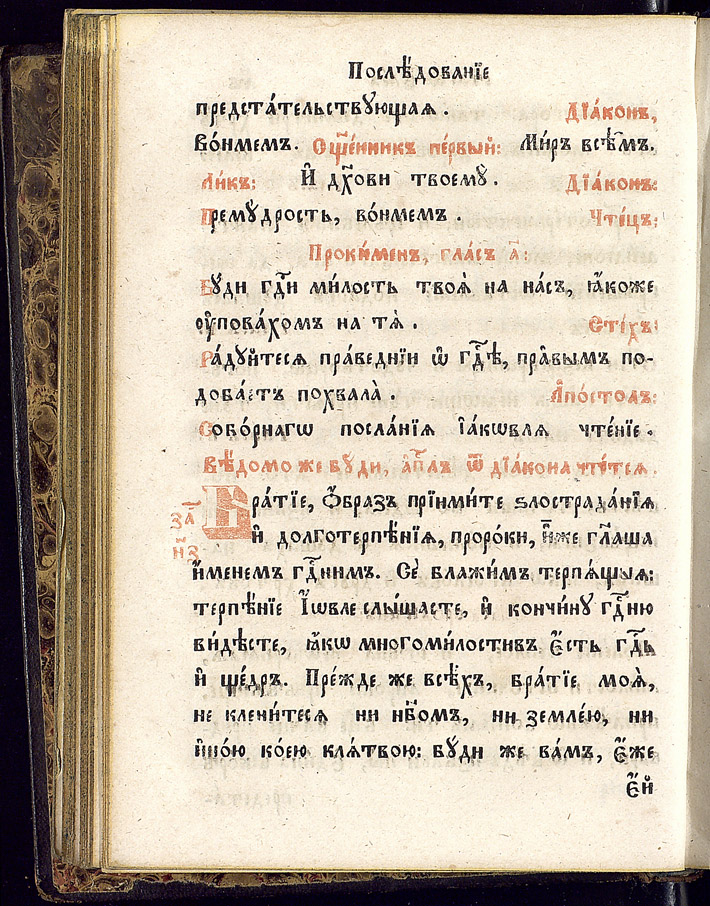 Послѣ́дованїе
предста́тельствꙋющая. Дїа́конъ,
Во́нмемъ. Сщ҃е́нникъ пе́рвый: Ми́ръ всѣ̑мъ.
Ли́къ: И҆ дх҃ови твоемꙋ̀. Дїа́конъ:
Премꙋ́дрость, во́нмемъ. Чте́цъ:
Проки́менъ, гла́съ а҃:
Бꙋ́ди гдⷭ҇и ми́лость твоѧ̀ на на́съ, ꙗ҆́коже
ᲂу҆пова́хомъ на тѧ̀. Сті́хъ:
Ра́дꙋйтесѧ пра́веднїи ѡ҆ гдⷭ҇ѣ, пра̑вымъ по-
доба́етъ похвала̀. А҆по́столъ:
Собо́рнагѡ посла́нїѧ і҆а́кѡвлѧ чте́нїе.
Вѣ́домо же бꙋ́ди, а҆пⷭ҇лъ ѿ дїа́кона чте́тсѧ.
Бра́тїе, ѻ҆́бразъ прїими́те ѕлострада́нїѧ
за҃ и҆ долготерпѣ́нїѧ, проро́ки, и҆̀же гл҃аша
н҃з и҆́менемъ гдⷭ҇нимъ. Се́ блажи́мъ терпѧ́щыѧ:
терпѣ́нїе І҆́ѡвле слы́шасте, и҆ кончи́нꙋ гдⷭ҇ню
ви́дѣсте, ꙗ҆́кѡ многоми́лостивъ є҆́сть гдⷭ҇ь
и҆ ще́дръ. Пре́жде же всѣ́хъ, бра́тїе моѧ̑,
не клени́тесѧ ни нб҃омъ, ни земле́ю, ни
и҆но́ю ко́ею клѧ́твою: бꙋ́ди же ва́мъ, є҆́же
є҆́й